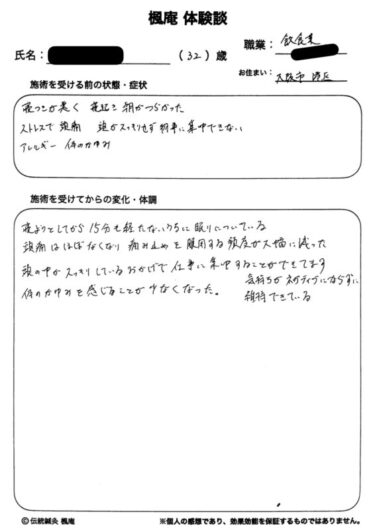 楓庵 体験談
氏名： （32）歳
職業： 飲食業
お住まい： 大阪市
施術を受ける前の状態・症状
寝つきが悪く 寝起き朝がつらかった
ストレスで頭痛 頭がスッキリせず物事に集中できない
アレルギー 体のかゆみ
施術を受けてからの変化・体調
寝ようとしてから15分も経たないうちに眠りについている
頭痛はほぼなくなり 痛み止めを服用する頻度が大幅に減った
頭の中がスッキリしているおかげで仕事に集中することができてます
気持ちがネガティブにならずに
体のかゆみを感じることが少なくなった。
維持できている
©伝統鍼灸 楓庵
※個人の感想であり、効果効能を保証するものではありません。